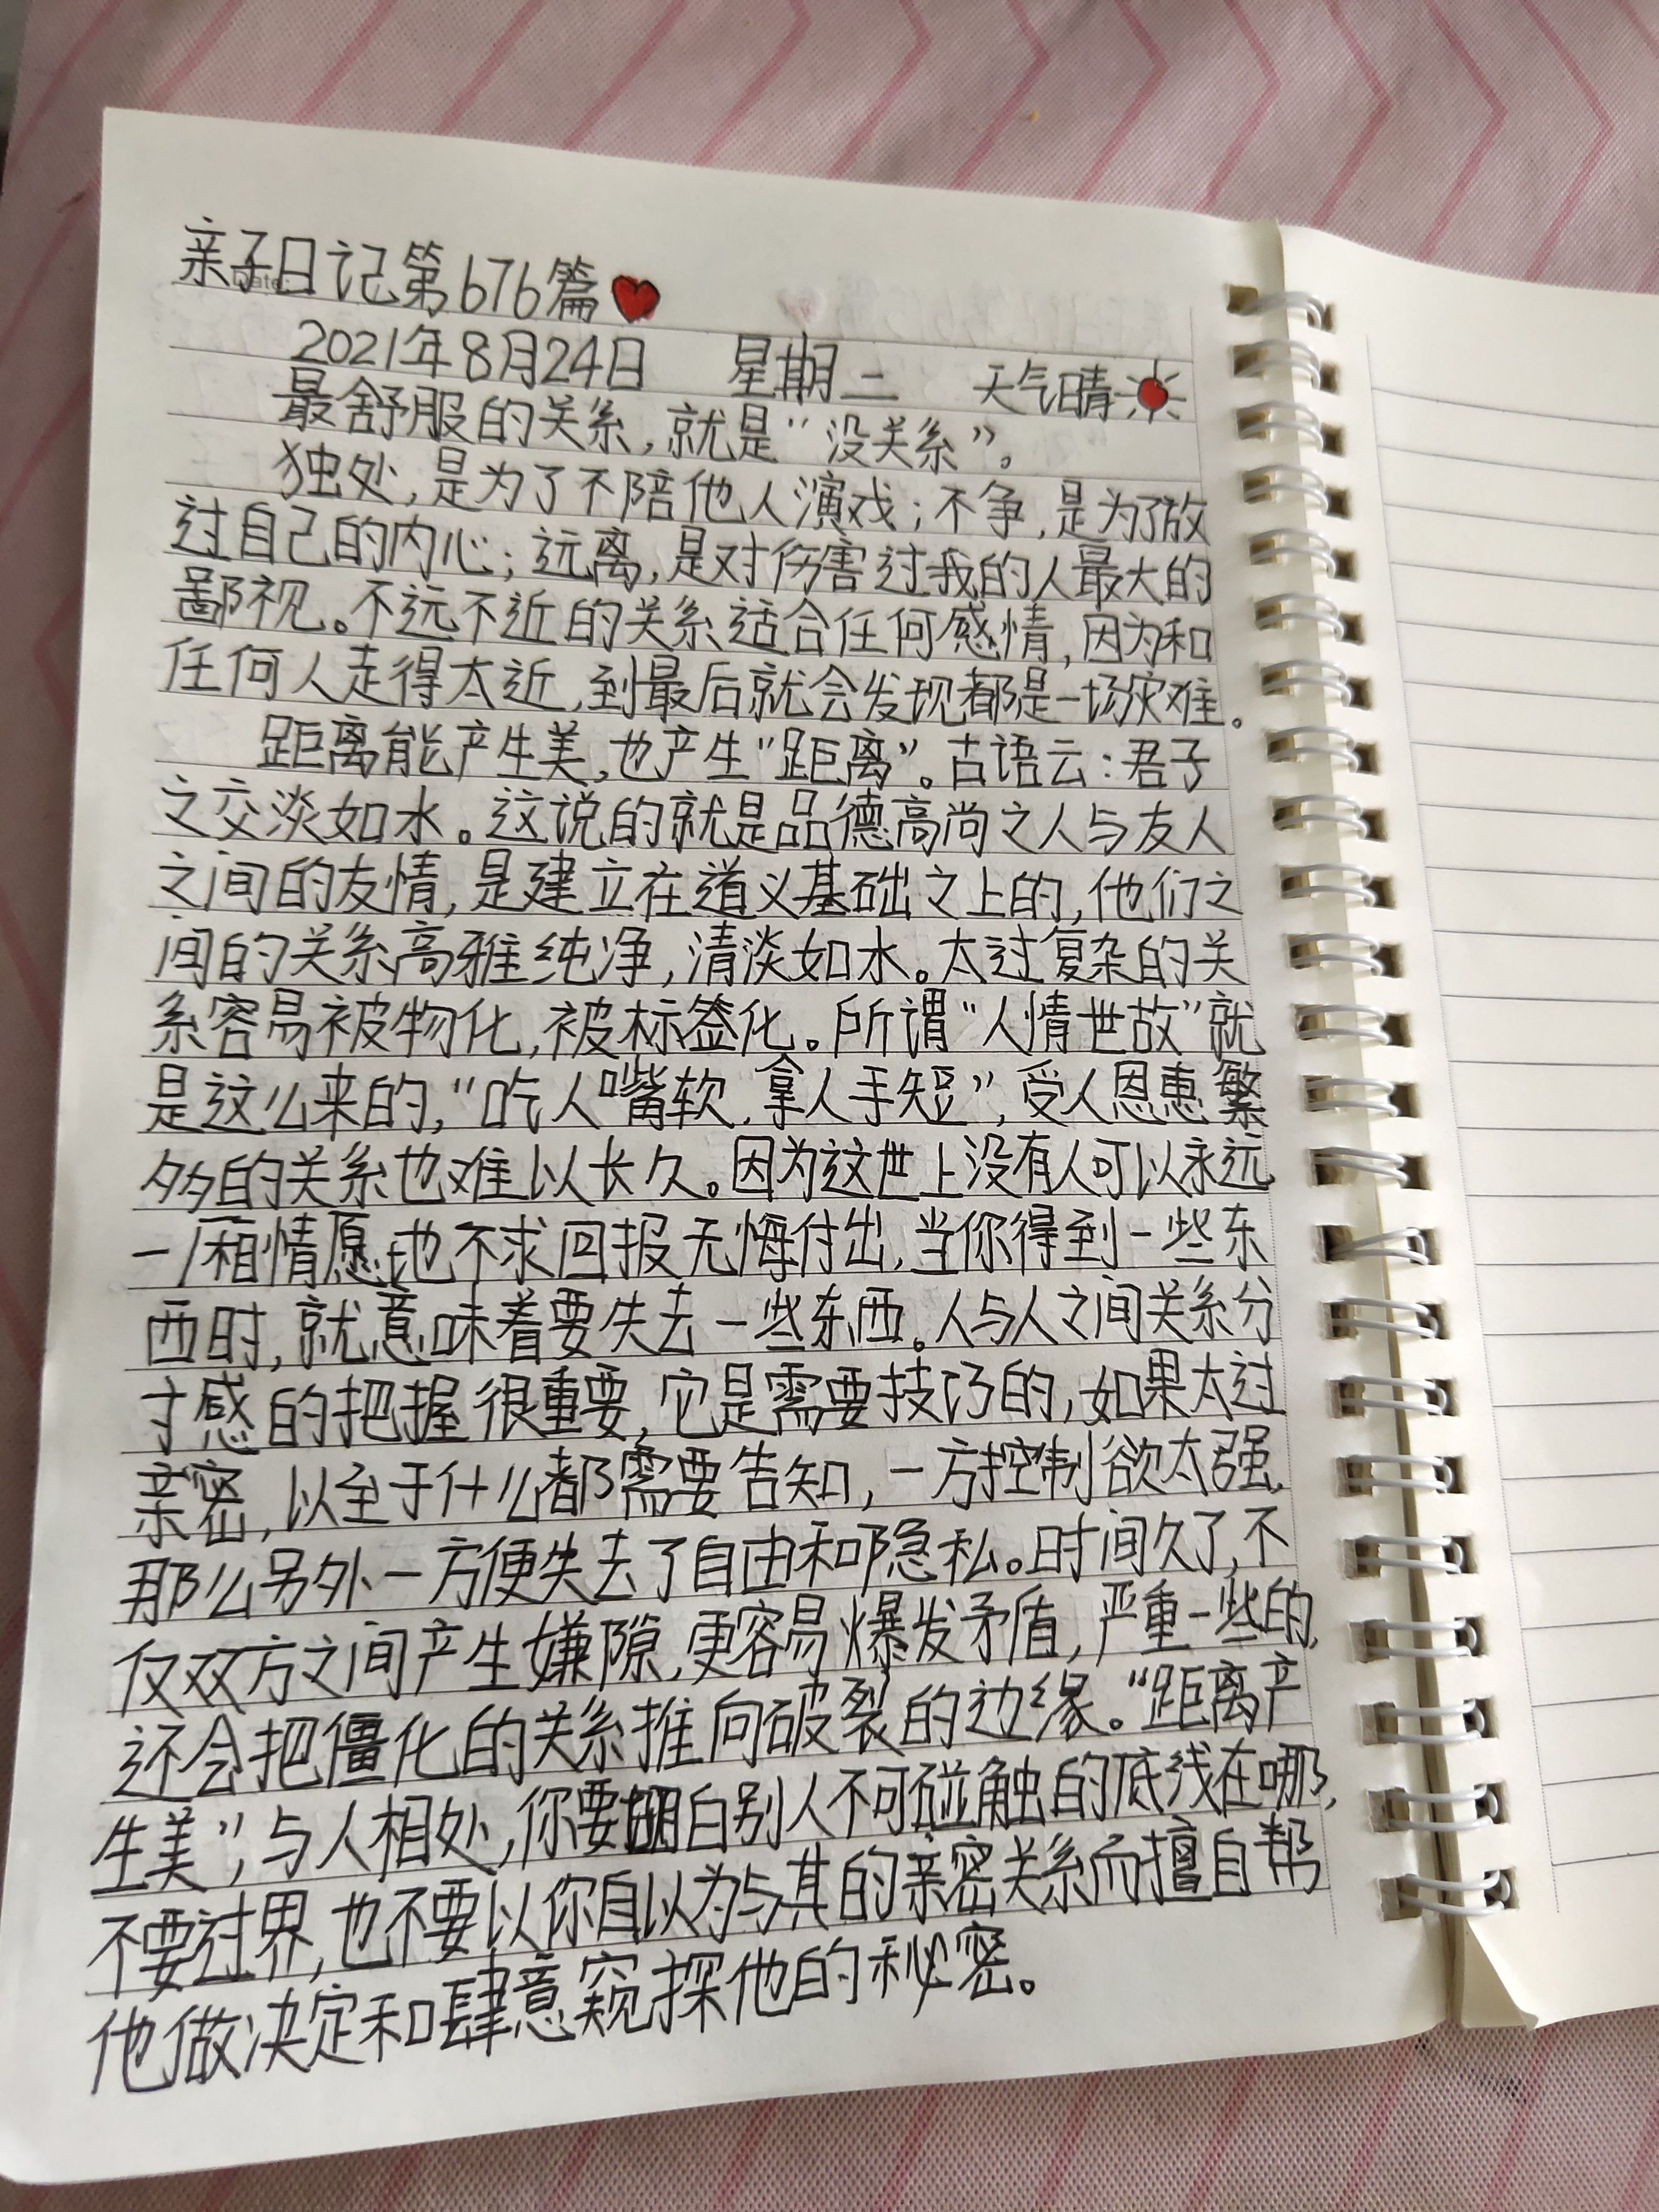 亲子日记第676篇
2021年8月24日 星期二 天气晴
最舒服的关系,就是“没关系”。
独处,是为了不陪他人演戏;不争,是为了放
过自己的内心;远离,是对伤害过我的人最大的
鄙视。不远不近的关系适合任何感情,因为和
任何人走得太近,到最后就会发现都是一场灾难。
距离能产生美,也产生“距离”。古语云:君子
之交淡如水。这说的就是品德高尚之人与友人
之间的友情,是建立在道义基础之上的,他们之
间的关系高雅纯净,清淡如水。太过复杂的关
系容易被物化,被标签化。所谓“人情世故”就
是这么来的,“吃人嘴软,拿人手短”,受人恩惠繁
多的关系也难以长久。因为这世上没有人可以永远
一厢情愿,也不求回报无悔付出,当你得到一些东
西时,就意味着要失去一些东西。人与人之间关系分
寸感的把握很重要,它是需要技巧的,如果太过
亲密,以至于什么都需要告知,一方控制欲太强,
那么另外一方便失去了自由和隐私。时间久了,不
仅双方之间产生嫌隙,更容易爆发矛盾,严重一些的,
还会把僵化的关系推向破裂的边缘。“距离产
生美”,与人相处,你要明白别人不可碰触的底线在哪,
不要过界,也不要以你自以为与其的亲密关系而擅自帮
他做决定和肆意窥探他的秘密。
Date: